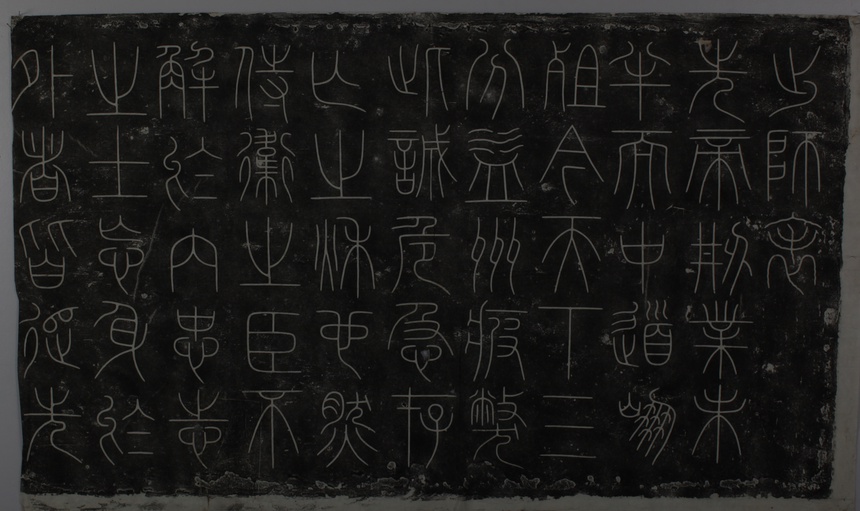 出師表
先帝刱業未
半而中道崩
殂今天下三
分益州疲弊
此誠危急存
亡之秋也然
侍衛之臣不
解於内忠志
之士忘身於
外者皆從先